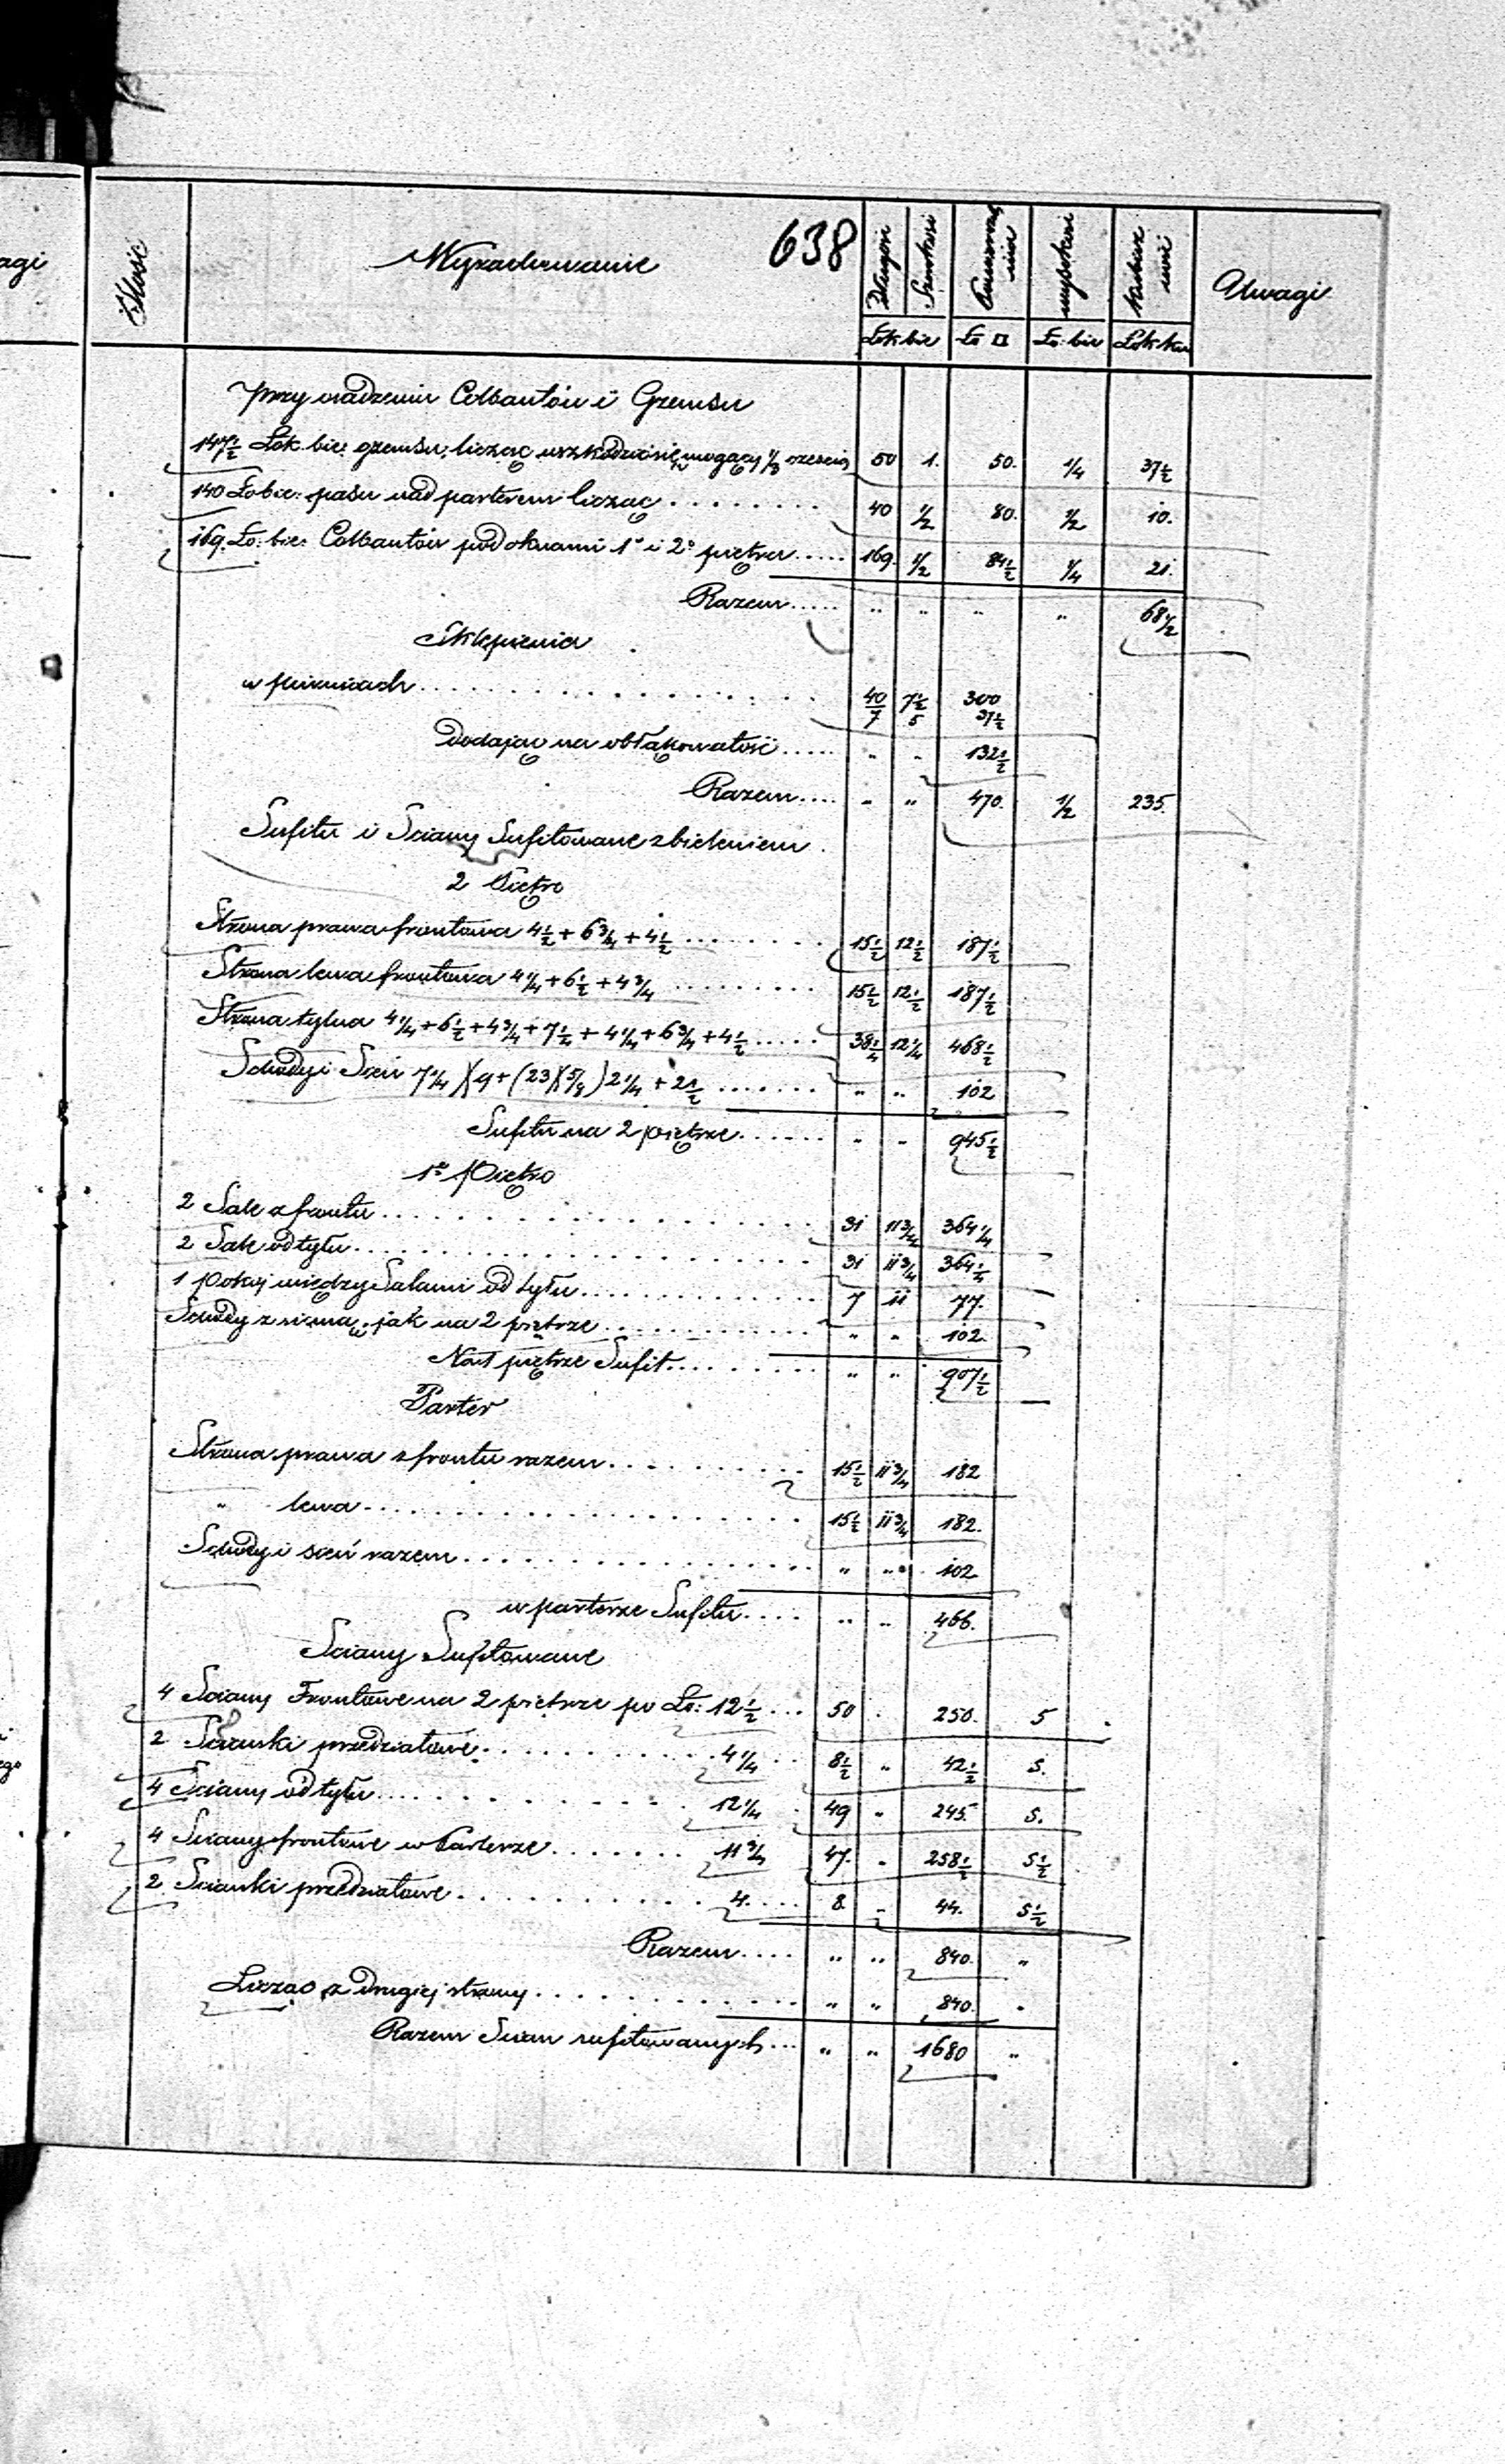 agi
Ilość
Wyrachowanie
638
Długość
Szerokość
Powierzchnia
wysokość
Uwagi
Łok bie
Ło □
Ło: bie
Łok ku
Przy osadzeniu Gzemsu
147 1/2 Łok. bie: gzemsu, licząc uszkodzić się mogący 1/3 częścią 50 1. 50. 1/4 37 1/2
140 Ło bie: pasu nad parterem licząc . . . . . . . 40 1/2 80. 1/2 10.
169. Ło: bie: pod oknami 1° i 2° piętra . . . . . 169. 1/2 84 1/2 1/4 21.
Razem . . . . . " " " " 68 1/2
Sklepienia
w piwnicach . . . . . . . . . . . . 40 7 1/2 300
7 5 37 1/2
dodając na obłąkowatość . . . . . " " 132 1/2
Razem . . . . " " 470. 1/2 235.
Sufitu i Sciany Sufitowane z bieleniem
2 Piętro
Strona prawa frontowa 4 1/2 + 6 3/4 + 4 1/2 . . . . . . . . 15 1/2 12 1/2 187 1/2
Strona lewa frontowa 4 1/4 + 6 1/2 + 4 3/4 . . . . . . . . . 15 1/2 12 1/2 187 1/2
Strona tylna 4 1/4 + 6 1/2 + 4 3/4 + 7 1/4 + 4 1/4 + 6 3/4 + 4 1/2 . . . . . 38 1/4 12 1/4 468 1/2
Schody i Sień 7 1/4 )( 9 + (23 )( 5/8) 2 1/4 + 2 1/2 . . . . . . . " " 102
Sufitu na 2 piętrze . . . . . . " " 945 1/2
1e Piętro
2 Sale z frontu . . . . . . . . . . . . . . 31 11 3/4 364 1/4
2 Sale od tyłu . . . . . . . . . . . . . . . 31 11 3/4 364 1/4
1 pokój między Salami od tyłu . . . . . . . . . . . 7 11 77.
Schody z sienią jak na 2 piętrze . . . . . . . . . . . " " 102.
Na 1 piętrze Sufit . . . . . . . . . " " 907 1/2
Parter
Strona prawa z frontu razem . . . . . . . . . . 15 1/2 11 3/4 182
" lewa . . . . . . . . . . . . . . . . 15 1/2 11 3/4 182.
Schody i sień razem . . . . . . . . . . . . . . " " 102
w parterze Sufitu . . . . " " 466.
Sciany Sufitowane
4 Sciany Frontowe na 2 piętrze po Ło: 12 1/2 . . . 50 . 250. 5
2 Scianki przedziałowe . . . . . . . . . 4 1/4 . . 8 1/2 " 42 1/2 5.
4 Sciany od tyłu . . . . . . . . . . . 12 1/4 . 49 " 245. 5.
4 Sciany frontowe w Parterze . . . . . . . 11 3/4 47. " 258 1/2 5 1/2
2 Scianki przedziałowe . . . . . . . . . 4. . . . 8. " 44. 5 1/2
Razem . . . . " " 840. "
Licząc z drugiej strony . . . . . . . . . . . . " " 840. "
Razem Scian sufitowanych . . . " " 1680 "